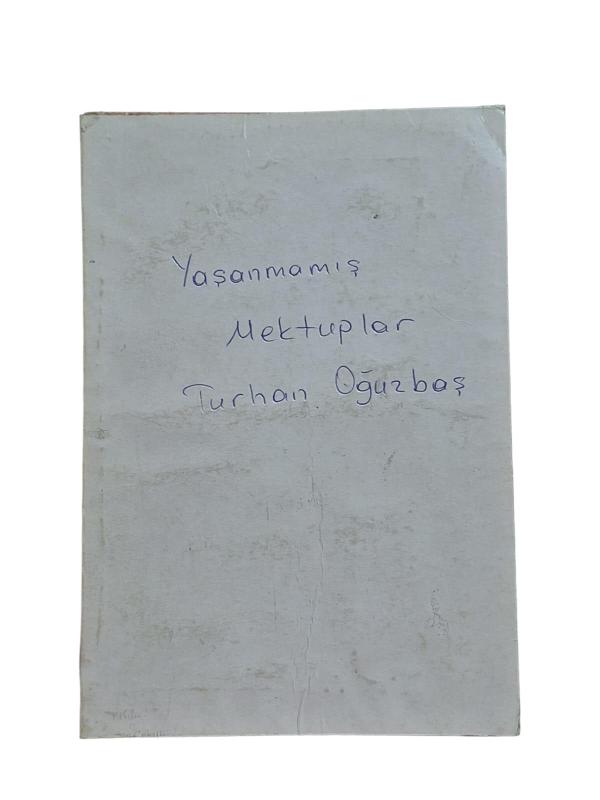 Yaşanmamış
Mektuplar
Turhan Oğuzbaş